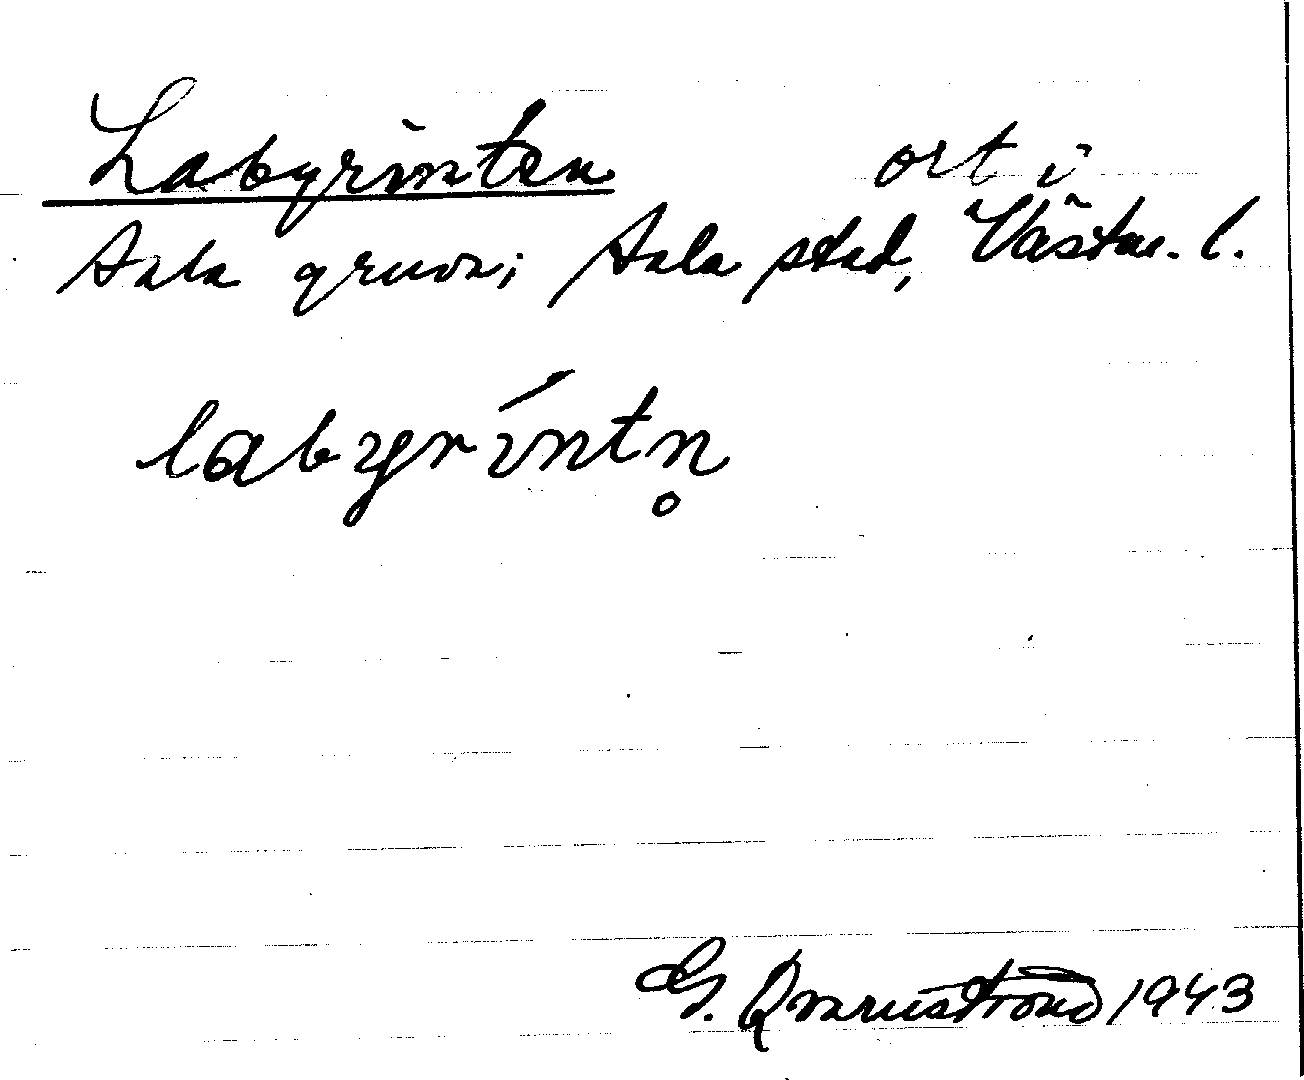 Labyrinten ort i
Sala gruva; Sala stad, Västm. l.
labyríntn̥
G. Qvarnström 1943